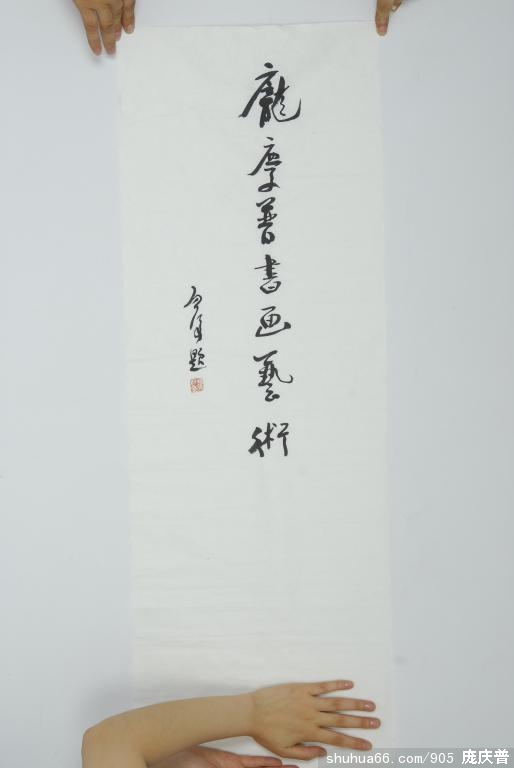 龐慶普書画藝術
題
shuhua66.com/905 庞庆普